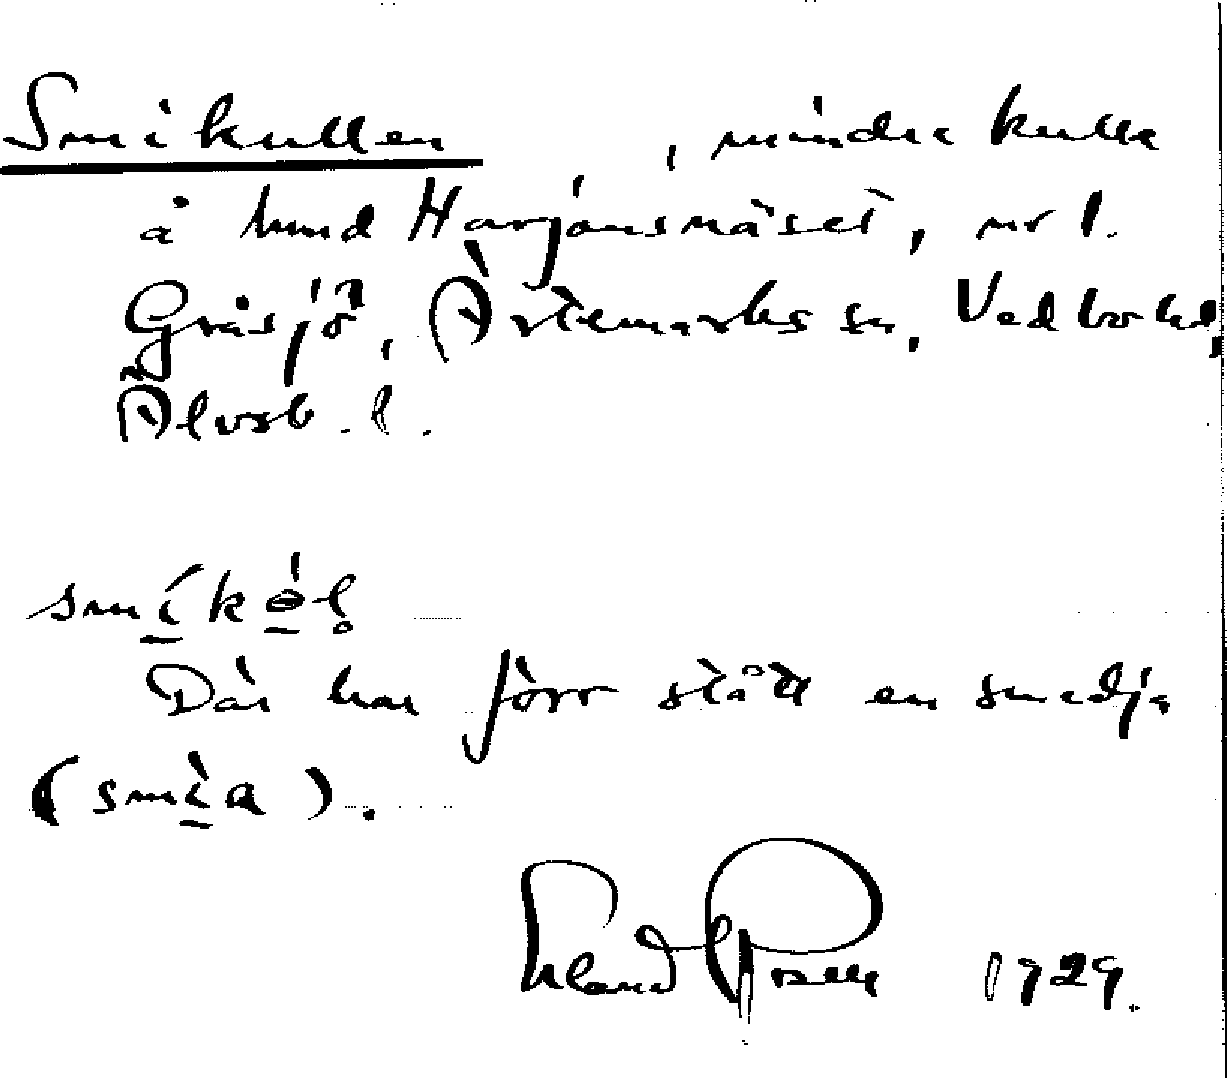 Smikullen , mindre kulle
å hmd Harjansnäset, nr 1.
Gräsjö, Ärtemarks sn, Vedbo hd,
Älvsb. l.
smíkö̀l̥
Där har förr stått en smedja
(smìa).
1929.